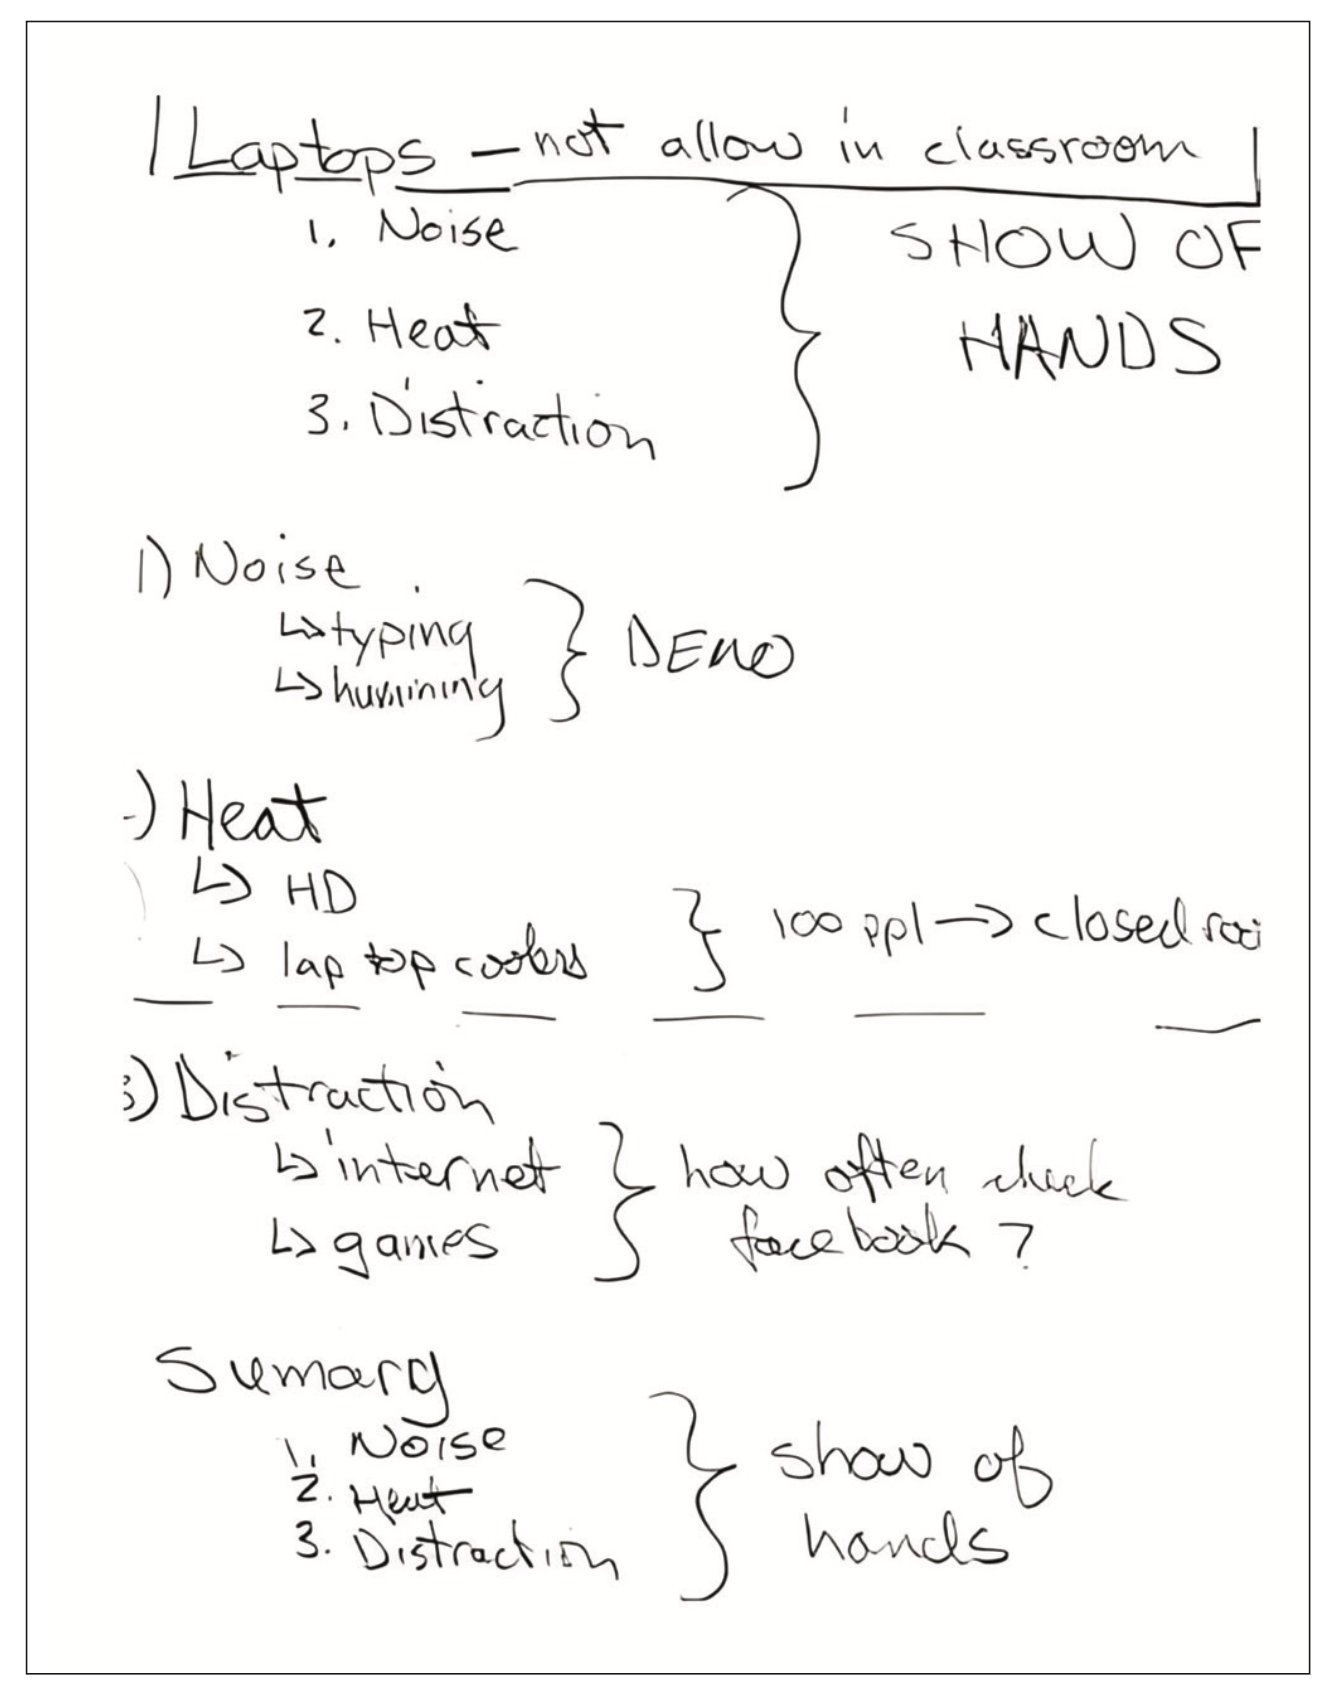 Laptops - not allow in classroom
1. Noise
2. Heat
3. Distraction
SHOW OF
HANDS
1) Noise
↳ typing
↳ humming
DEMO
) Heat
↳ HD
↳ lap top coolers
100 ppl → closed
3) Distraction
↳ internet
↳ games
how often check
facebook?
Sumary
1. Noise
2. Heat
3. Distraction
show of
hands